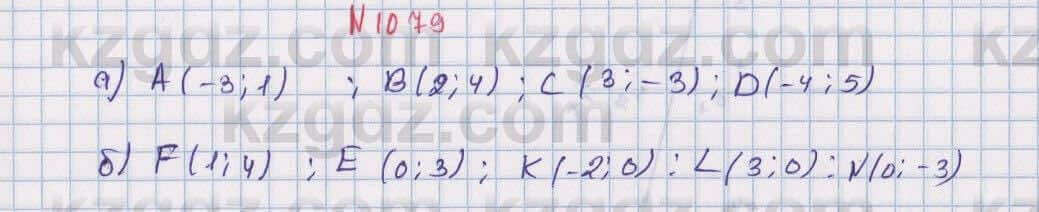 N 1079
kzgdz.com kzgdz.com kz
а) A(-3; 1) ; B(2; 4) ; C (3; -3) ; D(-4; 5)
kzgdz.com
б) F(1; 4) ; E (0; 3) ; K(-2; 0) : L(3; 0) : N(0; -3)